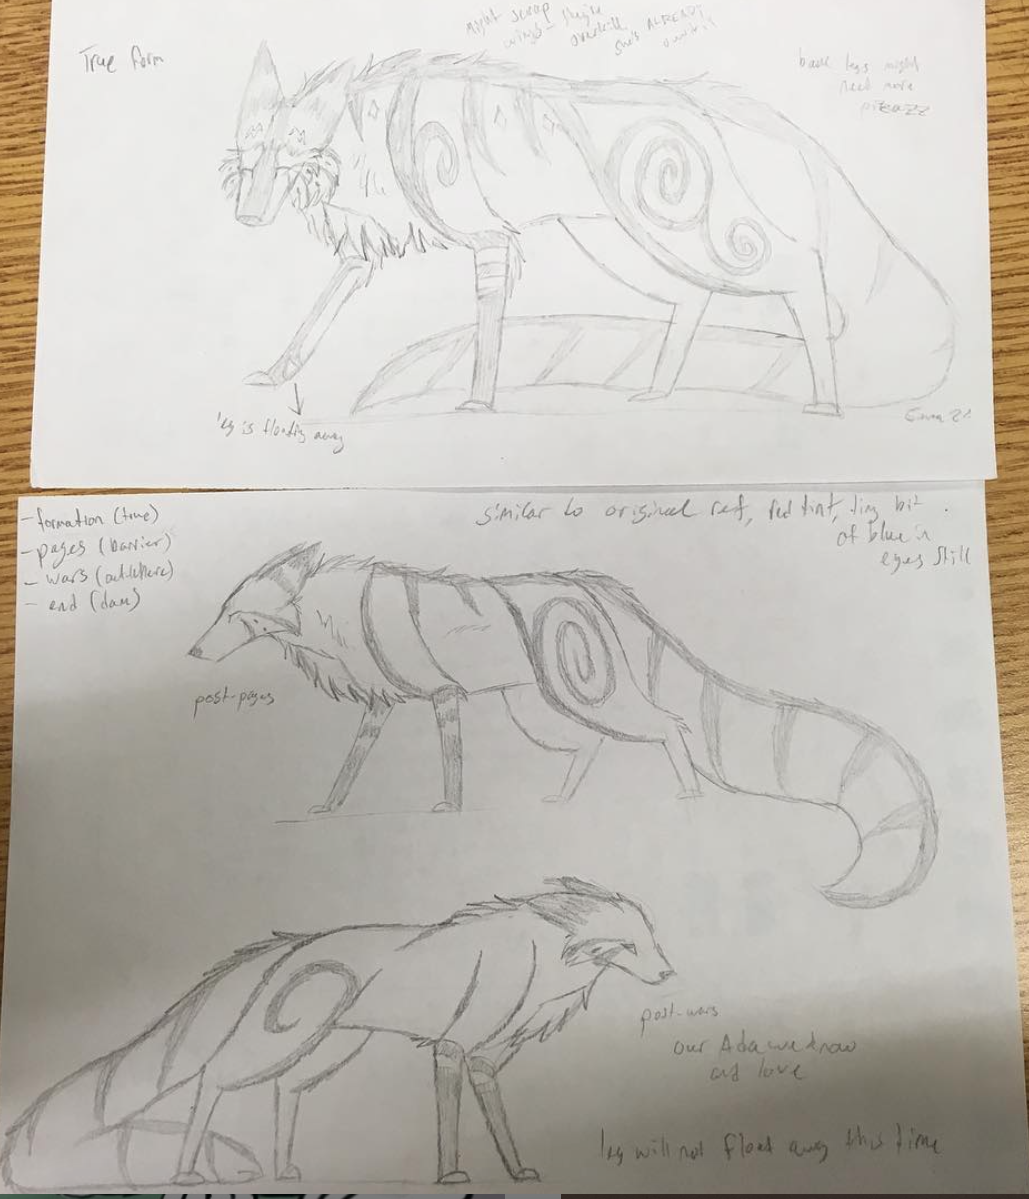 True form
might scrap
wings - maybe
overkill
she's ALREADY
back legs might
need more
pizzazz
leg is floating away
21
- formation (true)
- pages (barrier)
- wars (
- end (
similar to original ref, red tint, tiny bit
of blue in
eyes still
post-pages
post-wars
our Ada we know
and love
leg will not float away this time